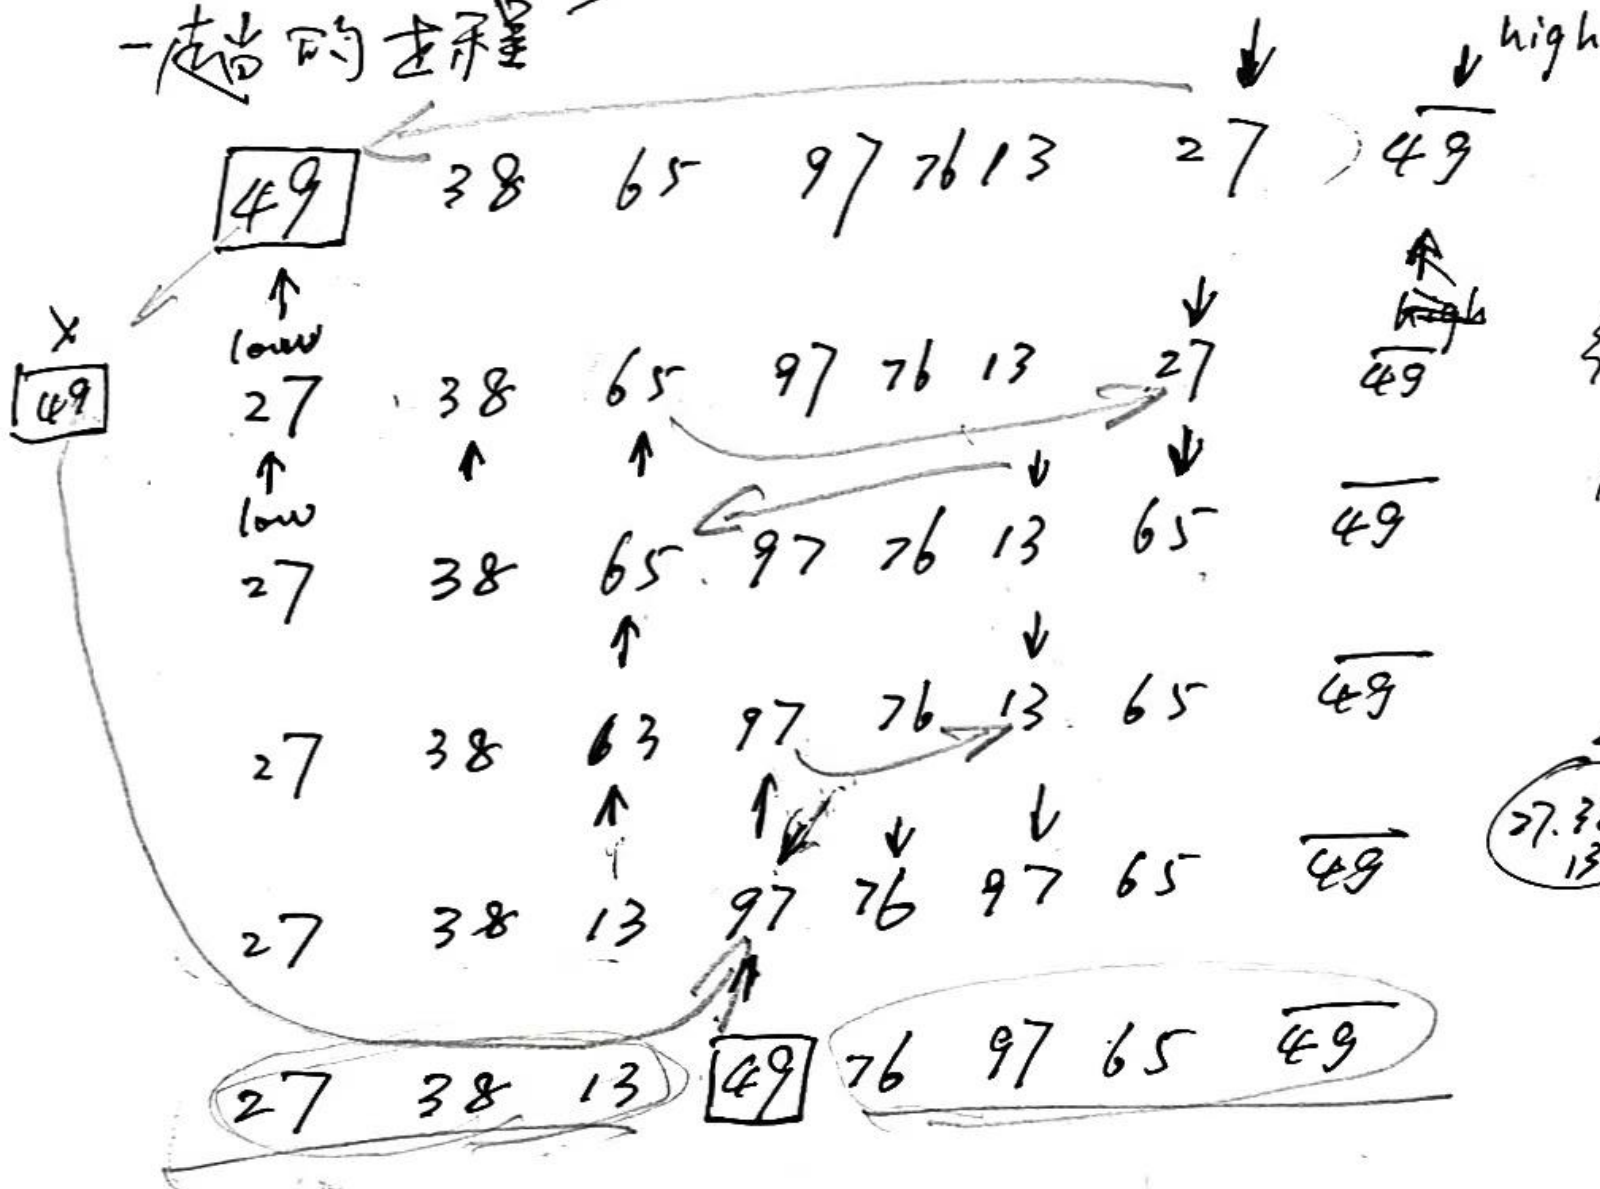 一趟的过程
high
49 38 65 97 76 13 27 49
low
high
x
49
27 38 65 97 76 13 27 49
low
27 38 65 97 76 13 65 49
27 38 63 97 76 13 65 49
27 38 13 97 76 97 65 49
27.3
13
27 38 13 49 76 97 65 49